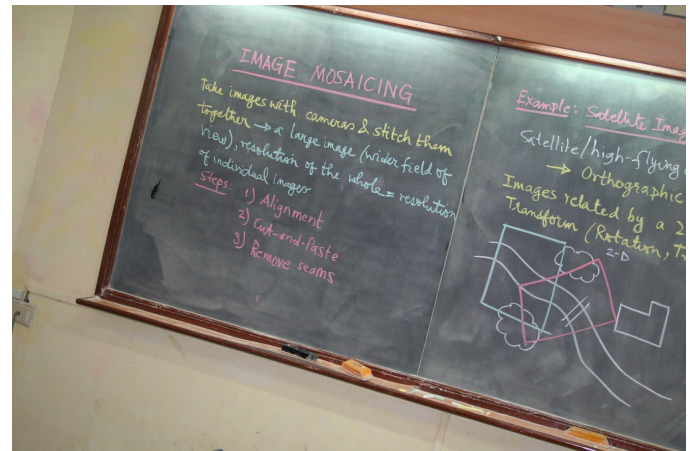 IMAGE MOSAICING
Take images with cameras & stitch them
together → a large image (wider field of
view), resolution of the whole = resolution
of individual images
Steps: 1) Alignment
2) Cut-and-Paste
3) Remove seams
Example: Satellite Imag
Satellite/high-flying
→ Orthographic
Images related by a 2
Transform (Rotation, T
2-D